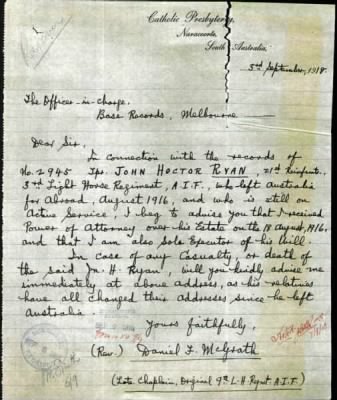 Catholic Presbytery,
Naracoorte,
South Australia.
3rd September, 1918.
The Officer-in-charge,
Base Records, Melbourne
Dear Sir,
In connection with the records of
No. 2945 Tpr. JOHN HOCTOR RYAN, 21st Reinfmts.,
3rd Light Horse Regiment, A.I.F., who left Australia
for Abroad, August 1916, and who is still on
Active Service, I beg to advise you that I received
Power of Attorney over his Estate on the 18 August, 1916,
and that I am also Sole Executor of his Will.
In case of any Casualty, or death of
the said J. H. Ryan, will you kindly advise me
immediately at above address, as his relatives
have all changed their addresses since he left
Australia.
Yours faithfully,
(Rev.) Daniel F. McGrath
(Late Chaplain, Original 9th L.H. Regmt. A.I.F.)